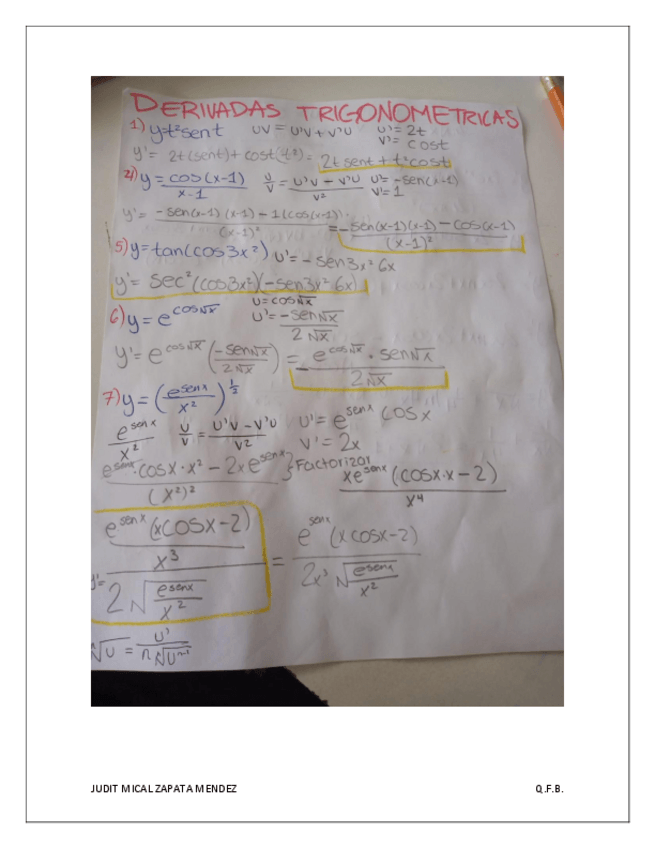 DERIVADAS TRIGONOMETRICAS
1) y=t²sent UV = U'V + V'U U'= 2t
V'= cost
y'= 2t(sent)+cost(t²)= 2t sent + t²cost
2) y = cos(x-1)/x-1 U/V = U'V - V'U/V² U'= -sen(x-1)
V'=1
y'= -sen(x-1)(x-1)-1(cos(x-1))/(x-1)² = -sen(x-1)(x-1)-cos(x-1)/(x-1)²
5) y=tan(cos3x²) U'= -sen3x²6x
y'= sec²(cos3x²)(-sen3x²6x)
6) y = e^cos√x U=cos√x
U'= -sen√x/2√x
y'= e^cos√x (-sen√x/2√x) = - e^cos√x · sen√x/2√x
7) y=(e^senx/x²)^1/2
e^senx/x² U/V = U'V - V'U/V² U'= e^senx cosx
V'= 2x
e^senx·cosx·x² - 2xe^senx/(x²)² } Factorizar xe^senx(cosx·x-2)/x⁴
y'= e^senx(xcosx-2)/x³/2√e^senx/x² = e^senx(xcosx-2)/2x³√e^senx/x²
ⁿ√U = U'/n ⁿ√Uⁿ⁻¹
JUDIT MICAL ZAPATA MENDEZ Q.F.B.